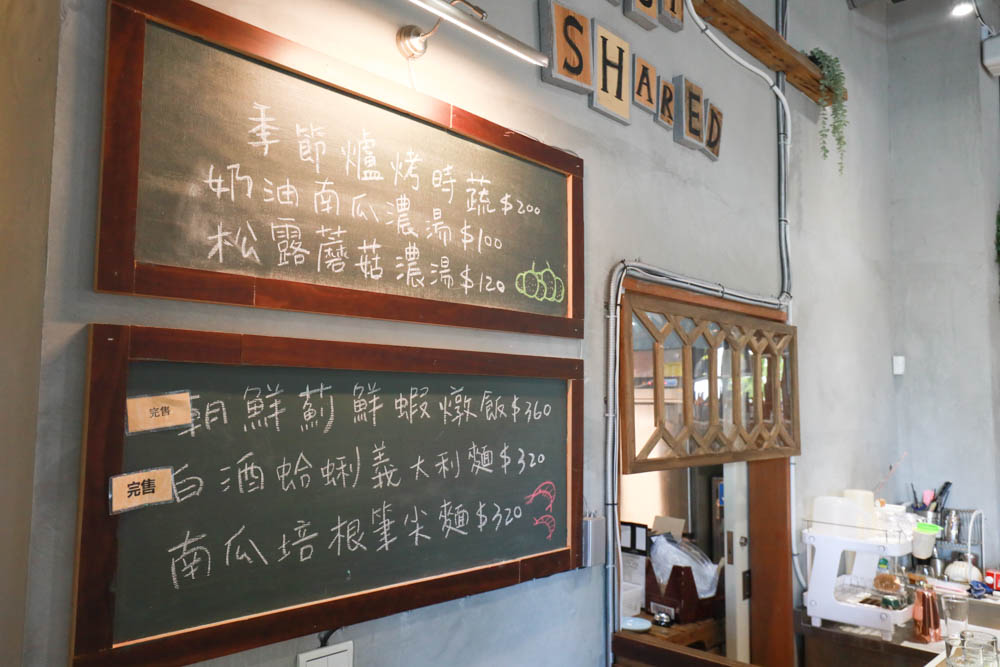 SHARED
季節爐烤時蔬$200
奶油南瓜濃湯$100
松露蘑菇濃湯$120
完售 朝鮮薊鮮蝦燉飯$360
完售 白酒蛤蜊義大利麵$320
南瓜培根筆尖麵$320